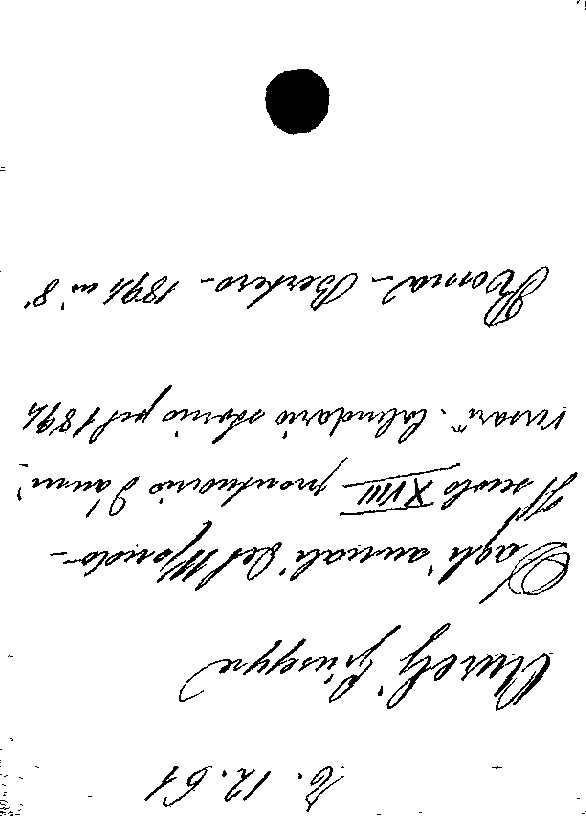 B. 12. 61
Aurelj Giuseppe
Dagli annali del Mondo –
Il secolo XVIII – prontuario d'anni-
versari". Calendario storico pel 1894
Roma – Bertero – 1894 in 8°